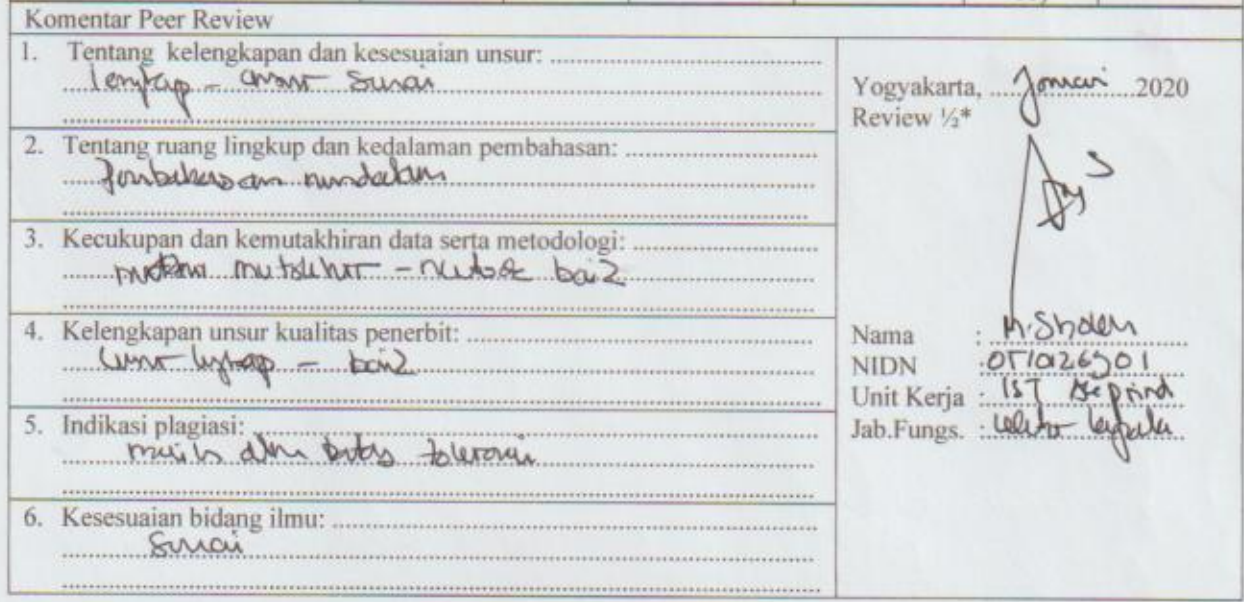 Komentar Peer Review
1. Tentang kelengkapan dan kesesuaian unsur:
lengkap - unsur sesuai
2. Tentang ruang lingkup dan kedalaman pembahasan:
Pembahasan mendalam
3. Kecukupan dan kemutakhiran data serta metodologi:
mutakhir - metode baik
4. Kelengkapan unsur kualitas penerbit:
unsur lengkap - baik
5. Indikasi plagiasi:
masih dlm batas toleransi
6. Kesesuaian bidang ilmu:
Sesuai
Yogyakarta, Januari 2020
Review ½*
Nama : M. Sholeh
NIDN :
Unit Kerja : IST Akprind
Jab.Fungs. : Lektor kepala